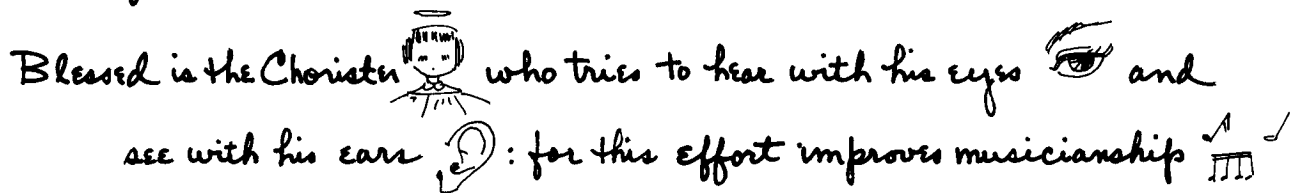 Blessed is the Chorister who tries to hear with his eyes and
see with his ears : for this effort improves musicianship